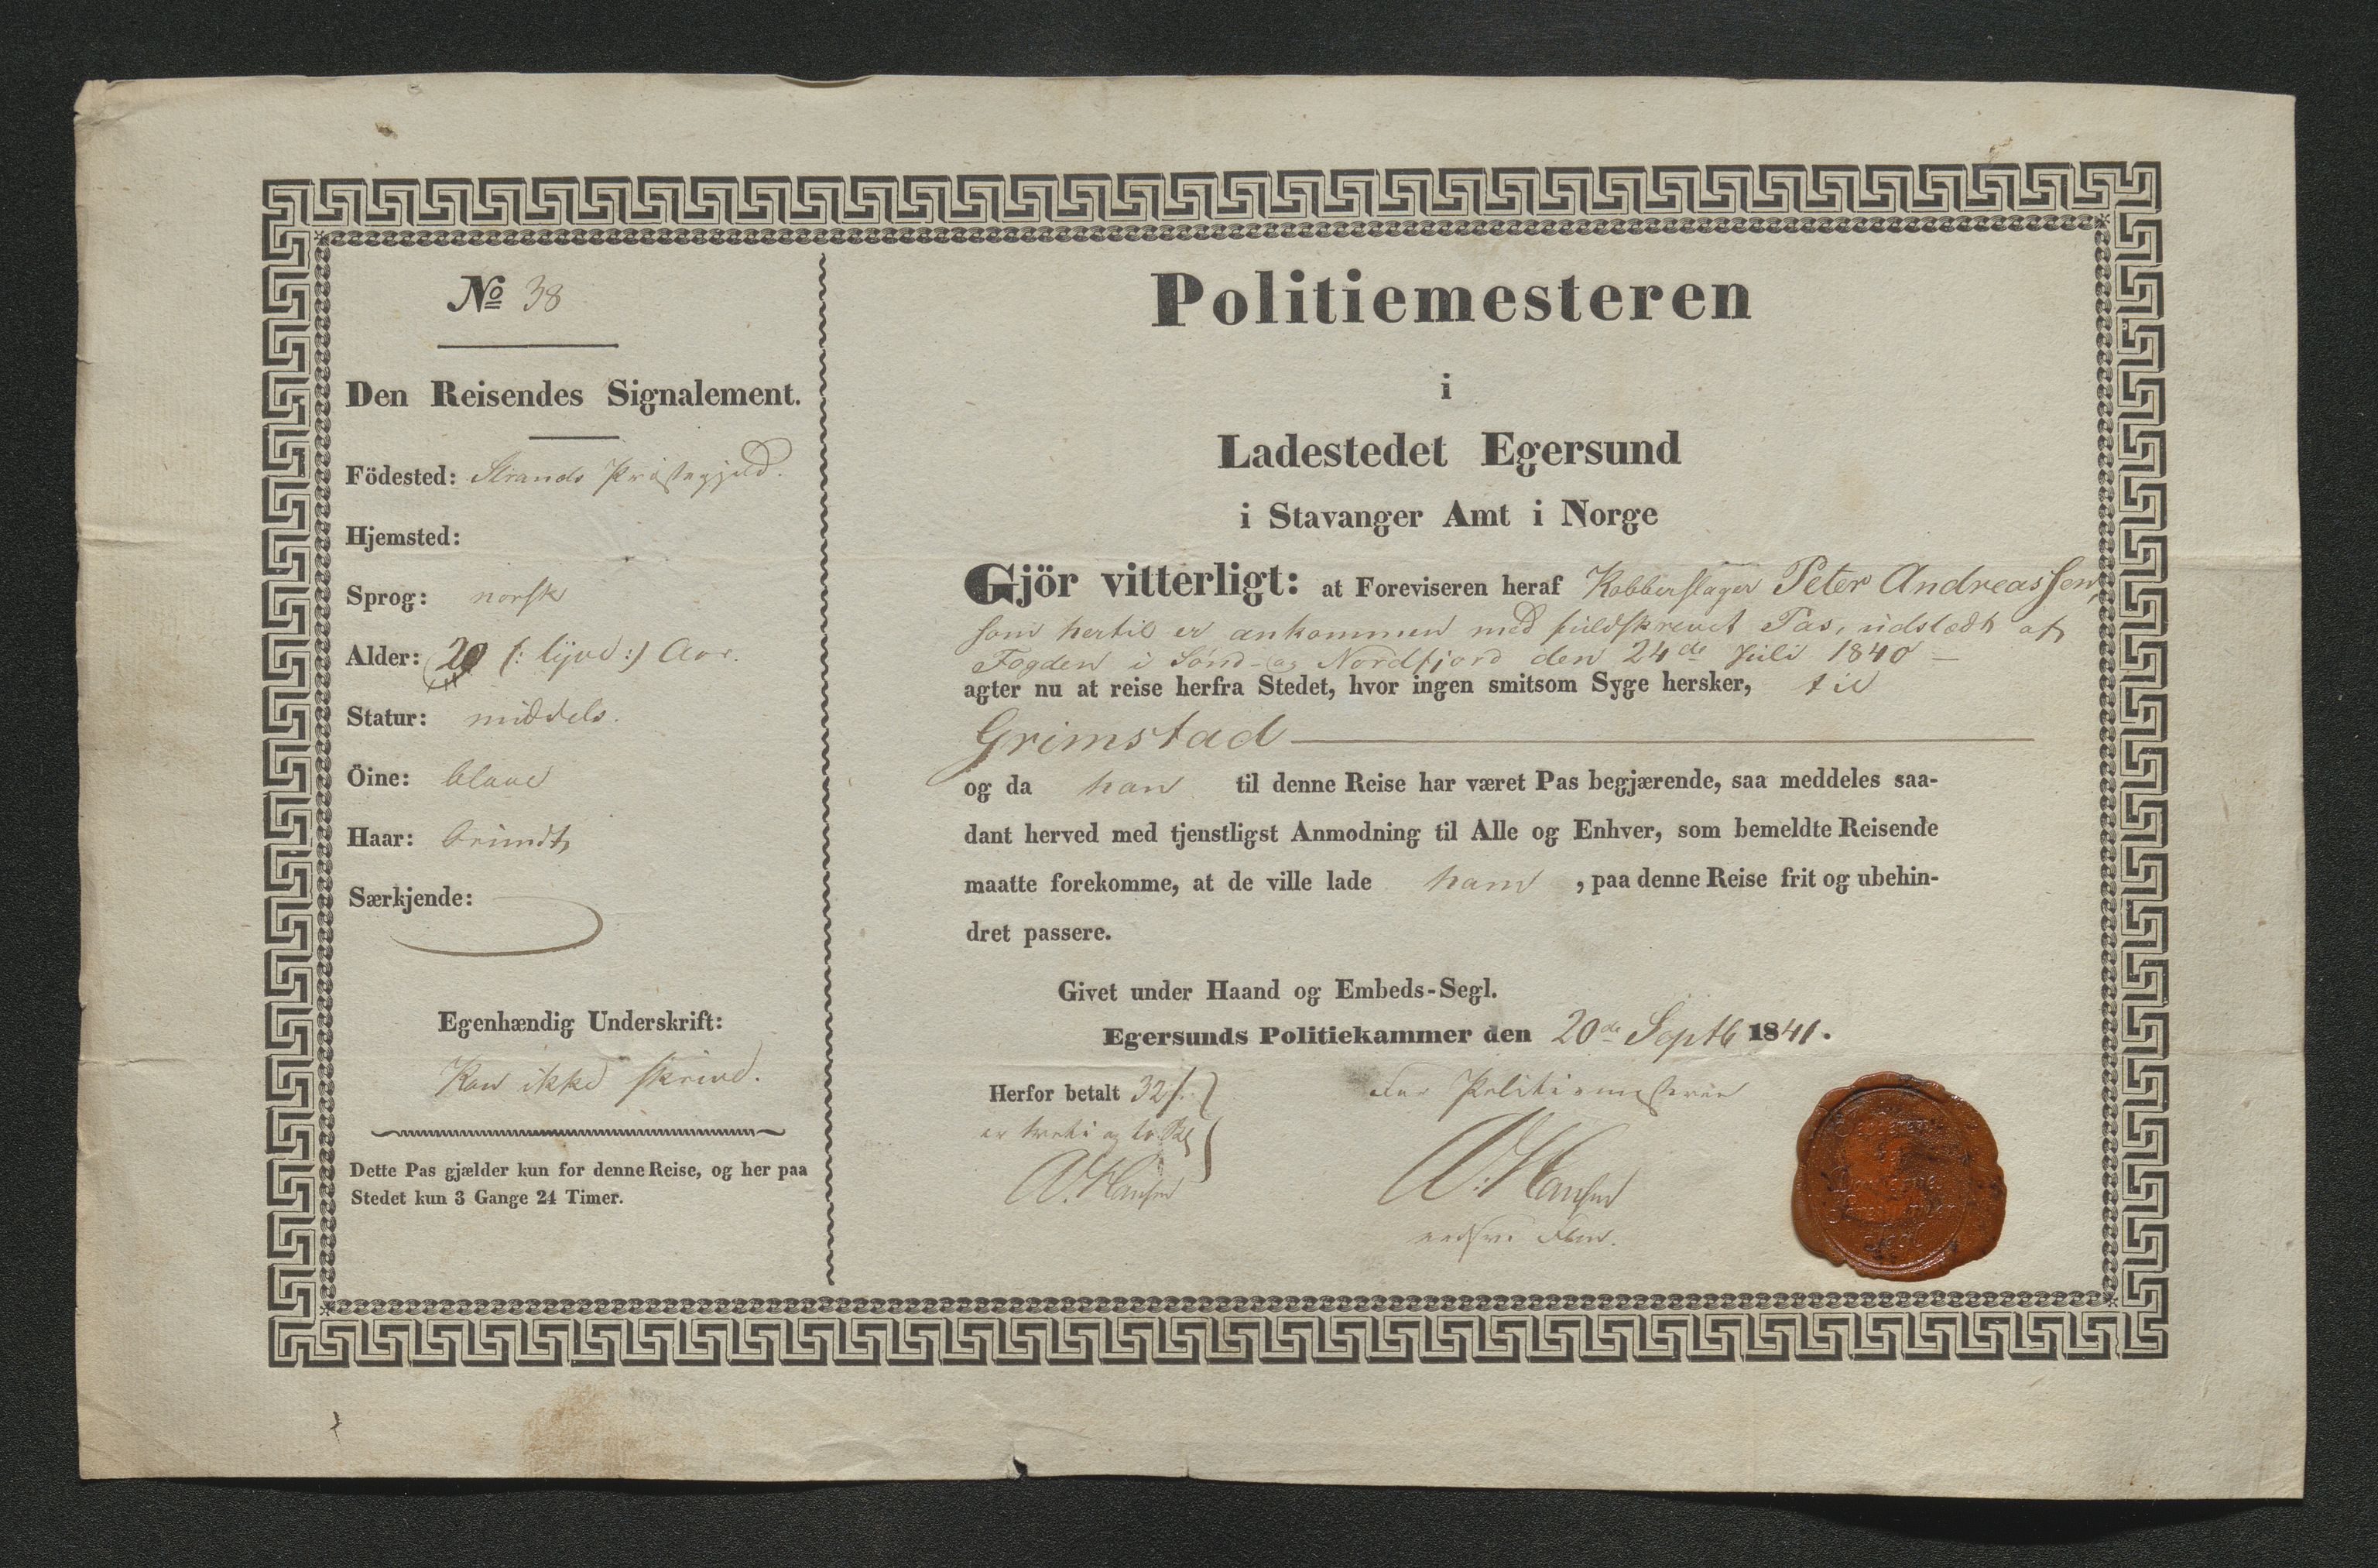 No 38
Den Reisendes Signalement.
Födested: Strands Præstegjeld.
Hjemsted:
Sprog: norsk
Alder: 20 (: tyve :) Aar.
Statur: middels.
Öine: blaae
Haar: bruundt
Særkjende:
Egenhændig Underskrift:
Kan ikke skrive.
Dette Pas gjælder kun for denne Reise, og her paa
Stedet kun 3 Gange 24 Timer.
Politiemesteren
i
Ladestedet Egersund
i Stavanger Amt i Norge
Gjör vitterligt: at Foreviseren heraf Kobberslager Peter Andreassen,
som hertil er ankommen med fuldskrevet Pas, udstædt af
Fogden i Sönd- og Nordfjord den 24de Juli 1840 —
agter nu at reise herfra Stedet, hvor ingen smitsom Syge hersker, til
Grimstad
og da han til denne Reise har været Pas begjærende, saa meddeles saa-
dant herved med tjenstligst Anmodning til Alle og Enhver, som bemeldte Reisende
maatte forekomme, at de ville lade ham , paa denne Reise frit og ubehin-
dret passere.
Givet under Haand og Embeds-Segl.
Egersunds Politiekammer den 20de Septb 1841.
Herfor betalt 32 s.
er treti og to
A. Hansen
For Politiemesteren
A. Hansen